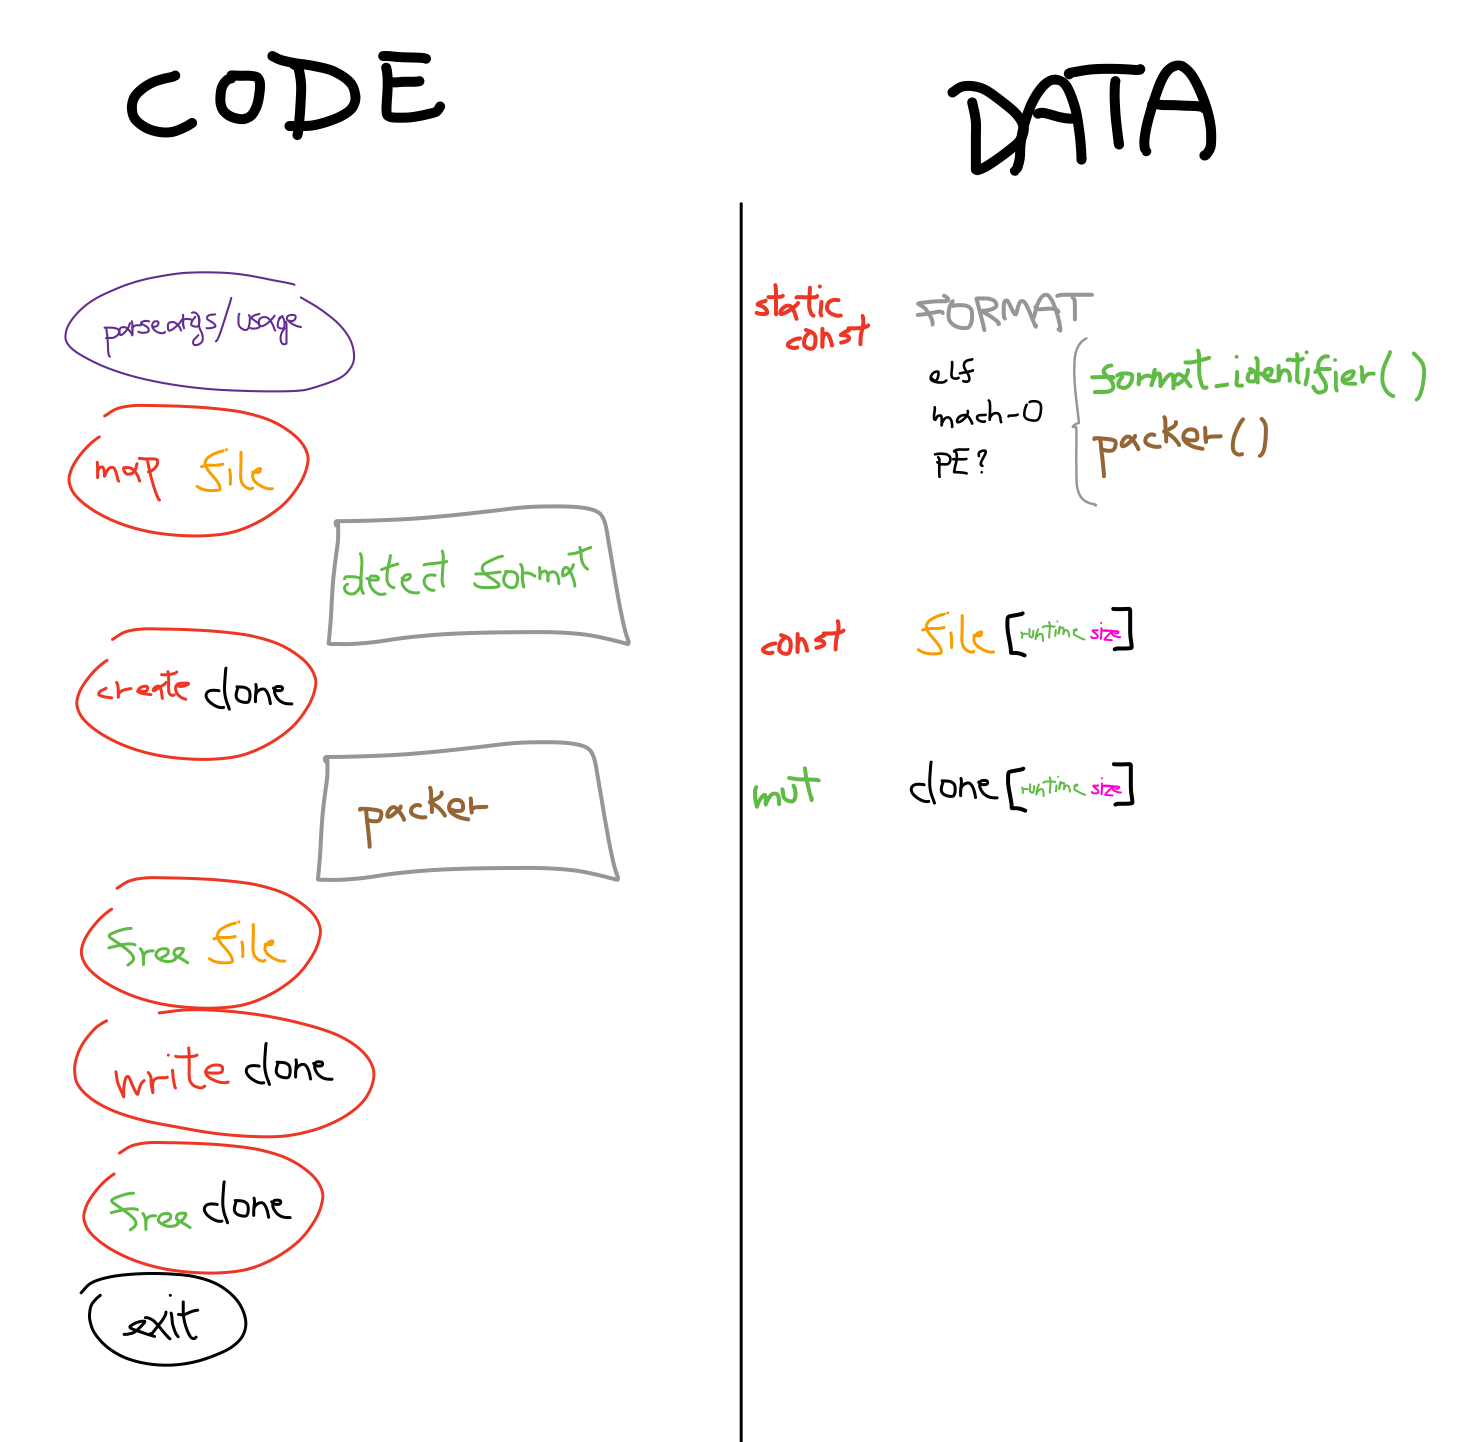 CODE
parseargs/usage
map file
detect format
create clone
packer
free file
write clone
free clone
exit
DATA
static
const
FORMAT
elf
mach-O
PE?
format_identifier()
packer()
const
file [runtime size]
mut
clone [runtime size]